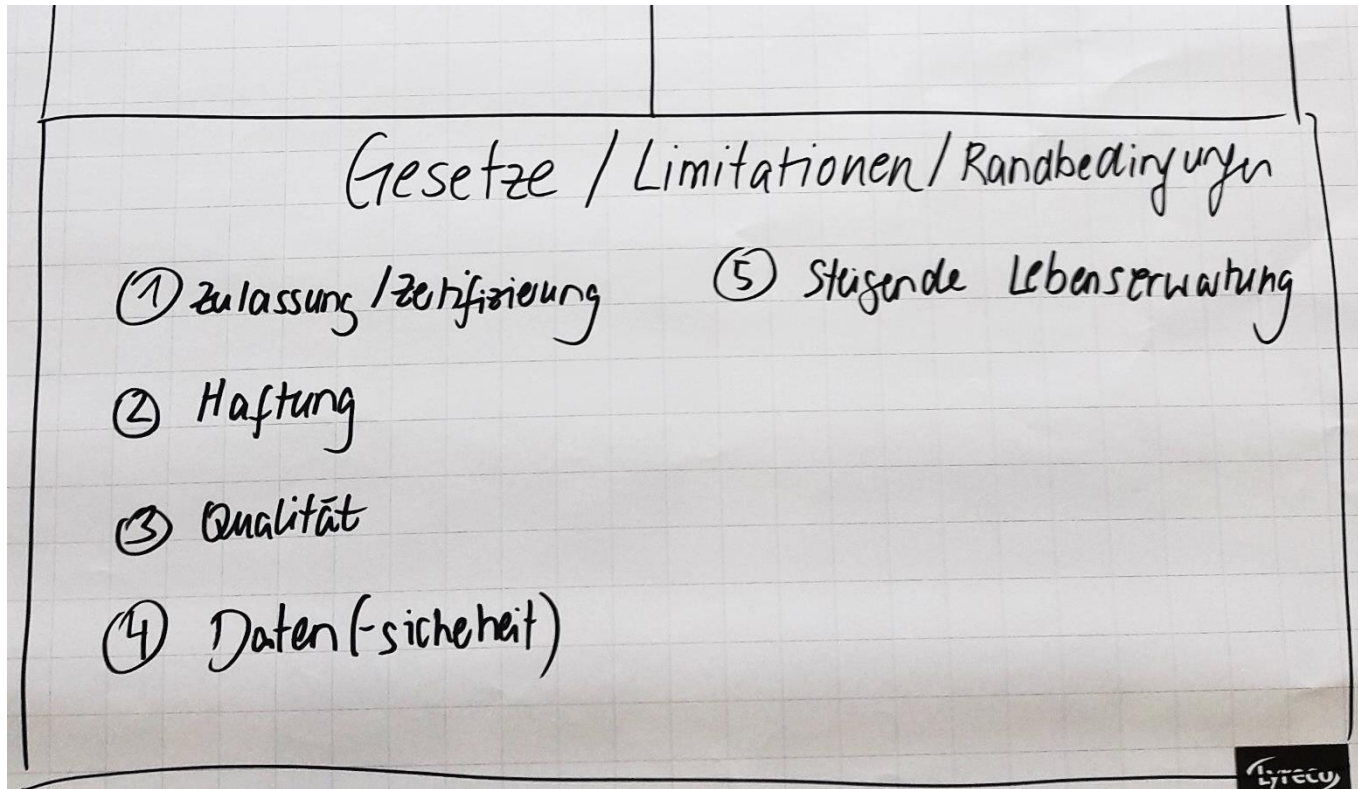 Gesetze / Limitationen / Randbedingungen
① Zulassung / Zertifizierung
② Haftung
③ Qualität
④ Daten (-sicherheit)
⑤ Steigende Lebenserwartung
Lyreco